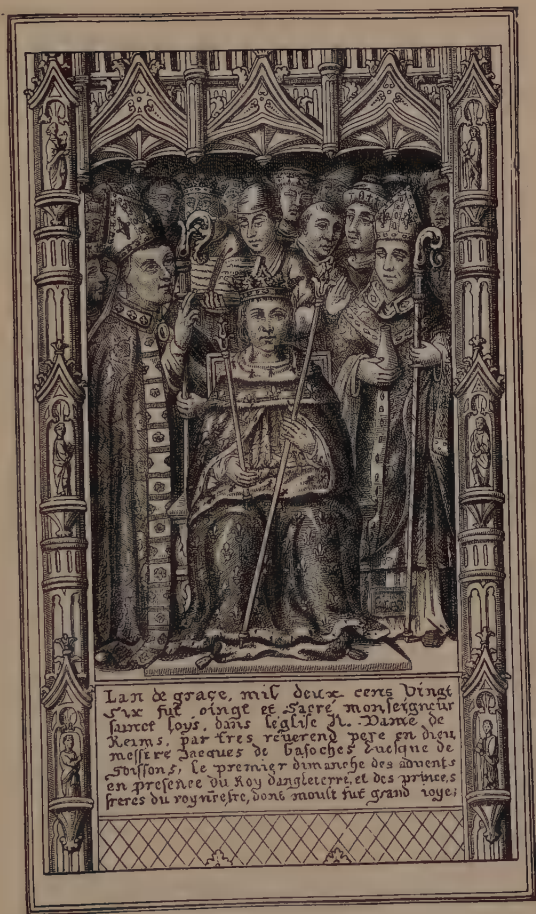 Lan de grace, mil deux cens Vingt
six fut oingt et Sacre monseigneur
sainct loys, dans leglise N. Dame de
Reims, par tres reverend pere en dieu
messire Jacques de basoches Evesque de
Soissons, le premier dimanche des advents
en presence du Roy dangleterre, et des princes
freres du roy nreste, dont moult fut grand ioye;